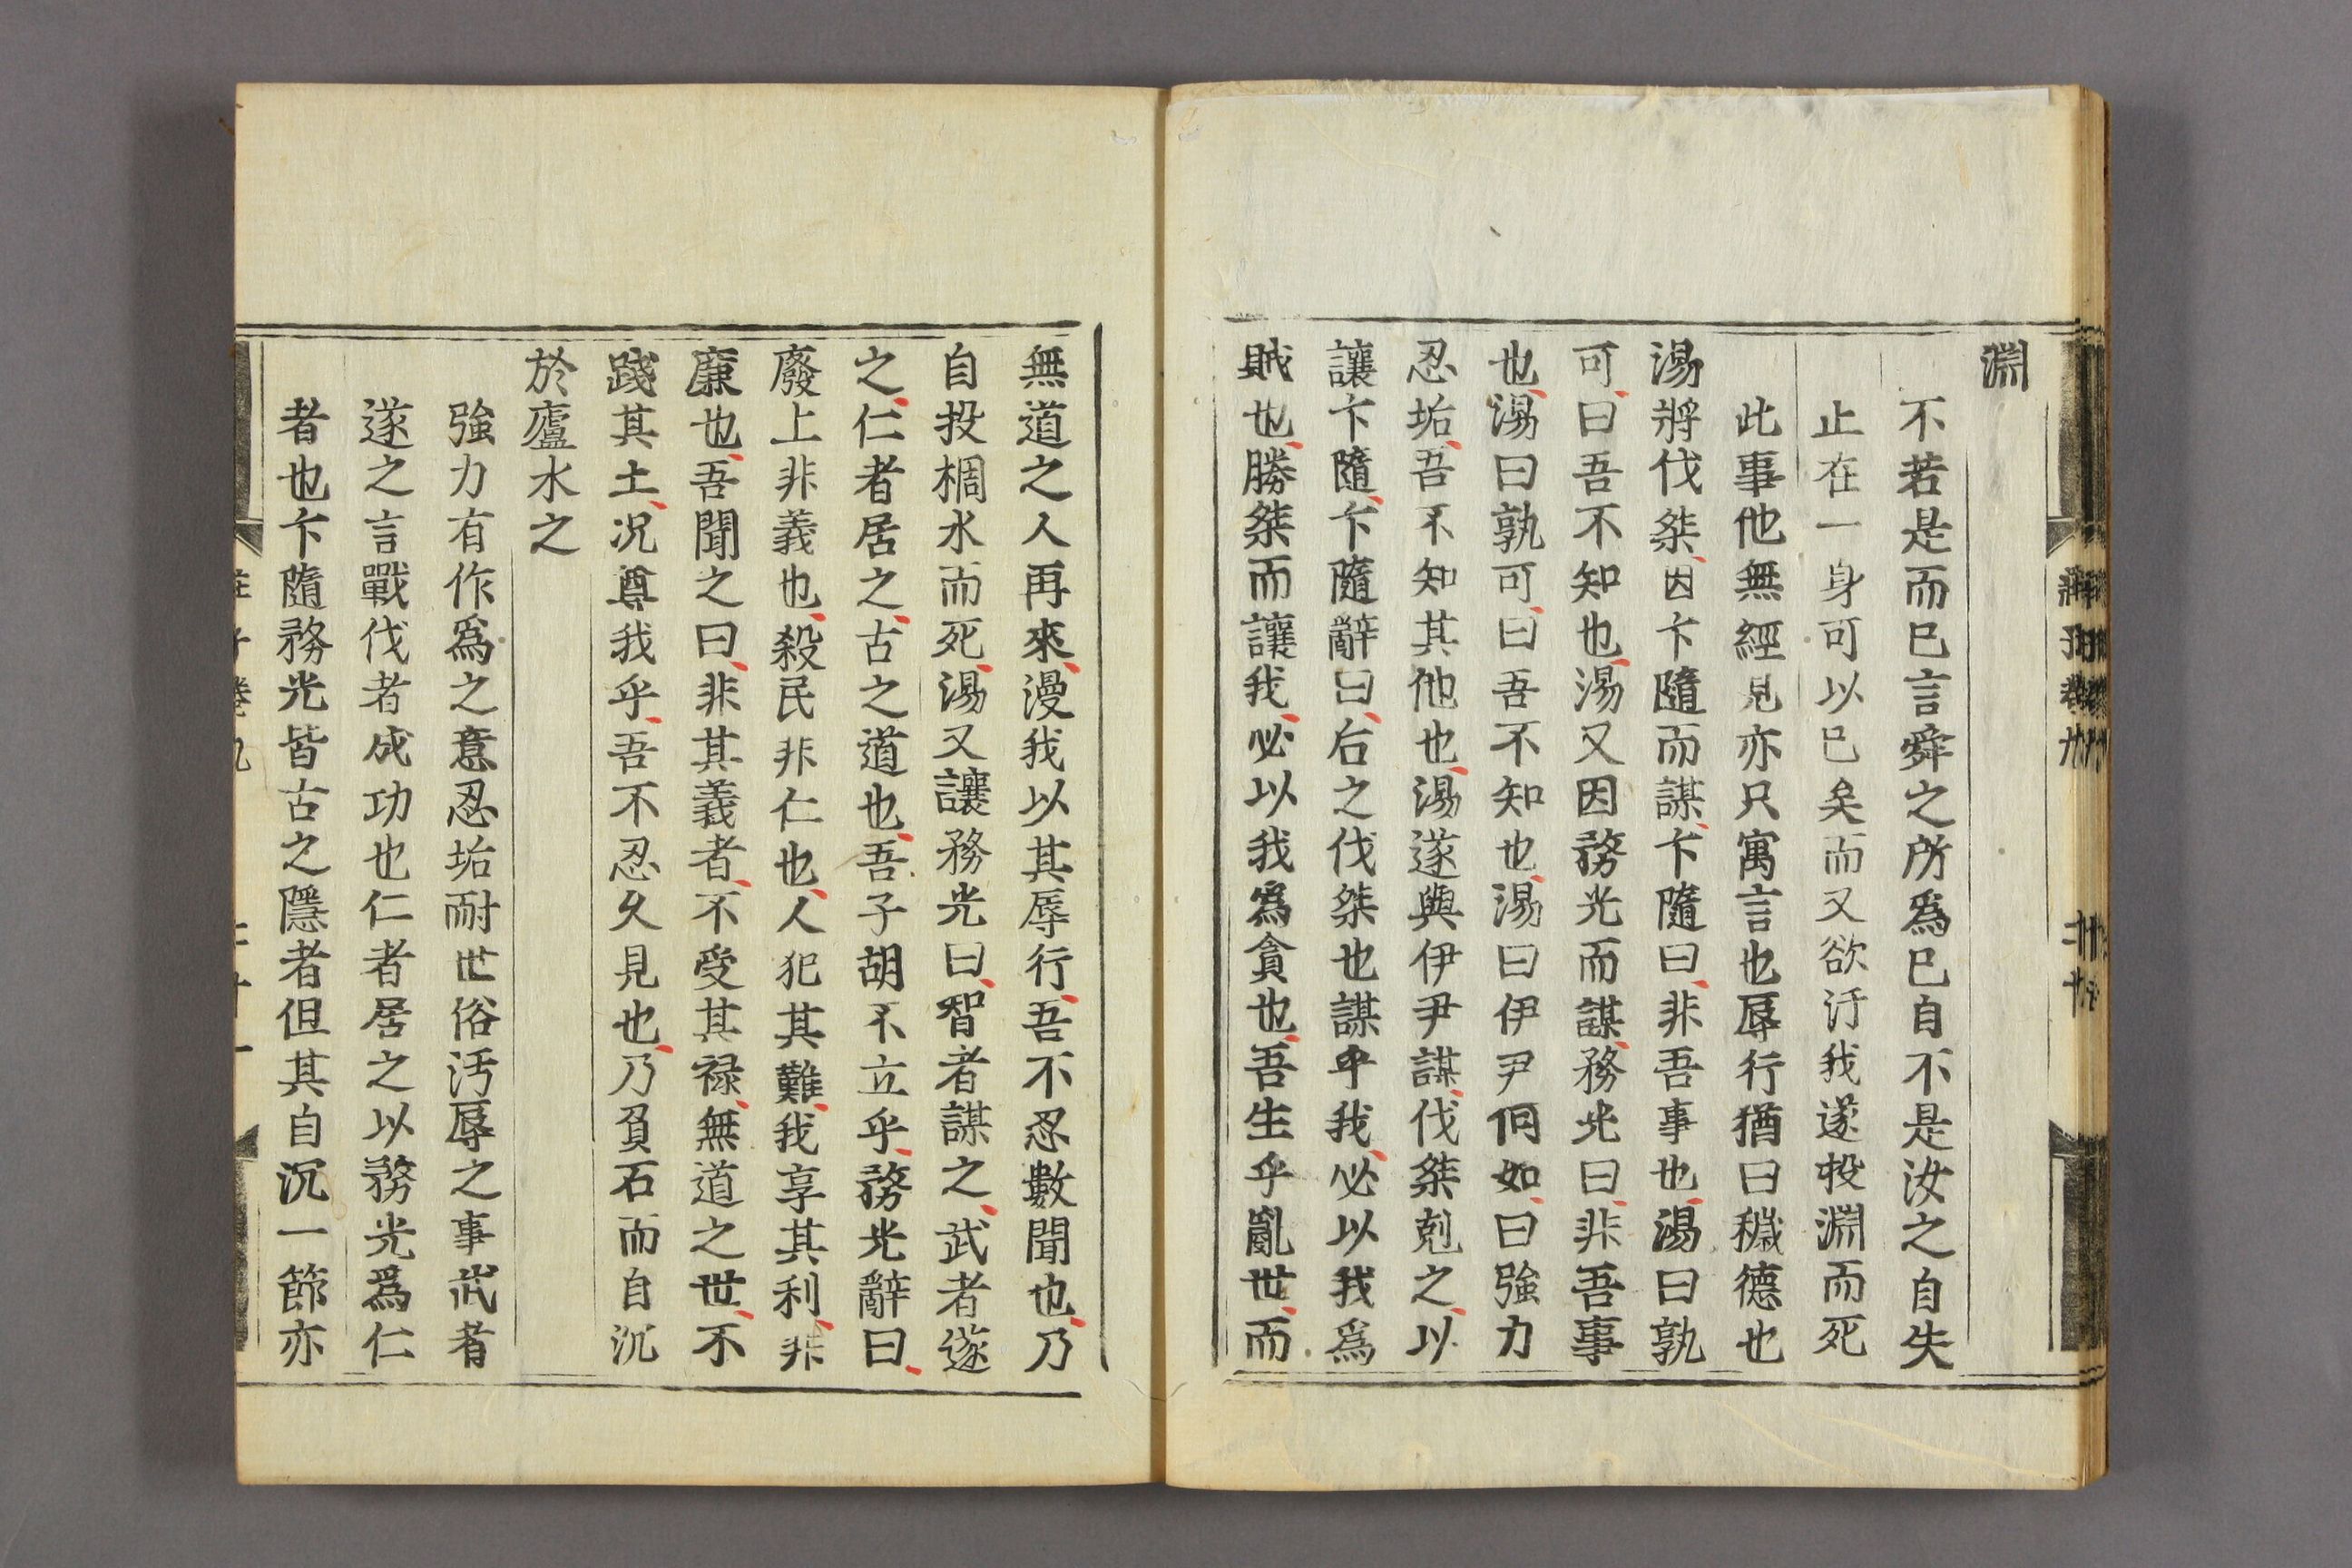 淵
不若是而已言舜之所爲已自不是汝之自失
止在一身可以已矣而又欲汙我遂投淵而死
此事他無經見亦只寓言也辱行猶曰穢德也
湯將伐桀因卞隨而謀卞隨曰非吾事也湯曰孰
可曰吾不知也湯又因務光而謀務光曰非吾事
也湯曰孰可曰吾不知也湯曰伊尹何如曰強力
忍垢吾不知其他也湯遂與伊尹謀伐桀剋之以
讓卞隨卞隨辭曰后之伐桀也謀乎我必以我爲
賊也勝桀而讓我必以我爲貪也吾生乎亂世而
無道之人再來漫我以其辱行吾不忍數聞也乃
自投椆水而死湯又讓務光曰智者謀之武者遂
之仁者居之古之道也吾子胡不立乎務光辭曰
廢上非義也殺民非仁也人犯其難我享其利非
廉也吾聞之曰非其義者不受其禄無道之世不
踐其土况尊我乎吾不忍久見也乃負石而自沉
於廬水之
強力有作爲之意忍垢耐世俗汚辱之事武者
遂之言戰伐者成功也仁者居之以務光爲仁
者也卞隨務光皆古之隱者但其自沉一節亦